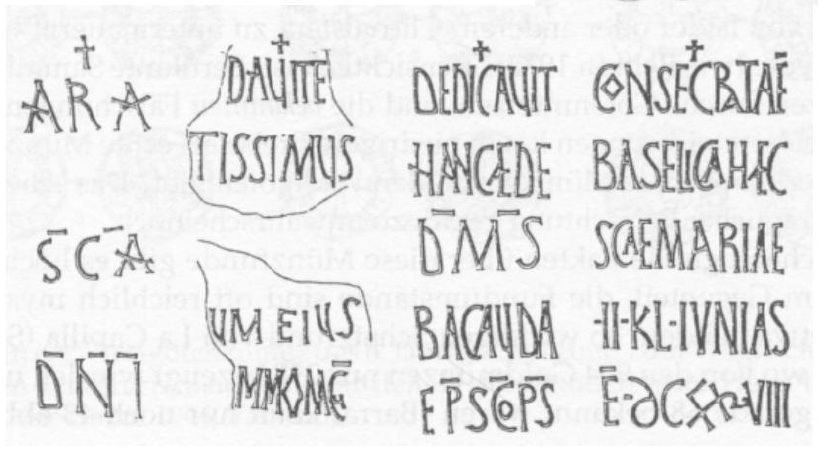 † ARA
SCA
DN
† DAUITE
TISSIMUS
UM EIUS
† DEDICAUIT
HANCAEDE
DMS
BACAUDA
EPSCPS
† CONSECRTAE
BASELICAHAC
SCAEMARIAE
II·KL·IVNIAS